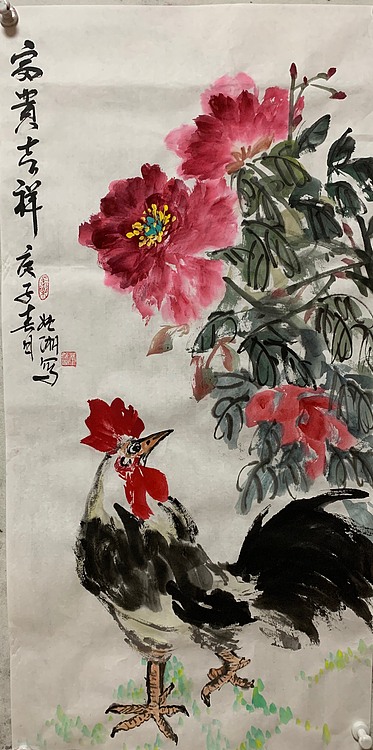 富貴吉祥
庚子春月
湖写